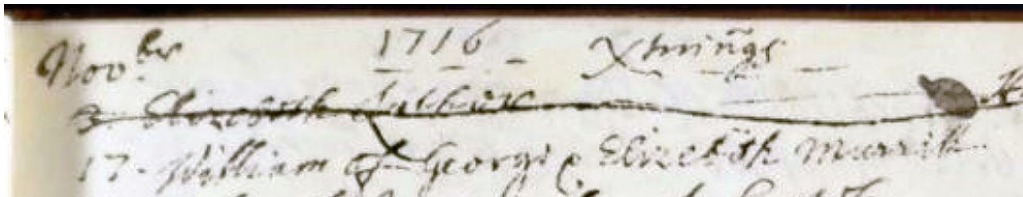 Nov:ber 1716 Xtnings
3. Elizebeth
17 - William of George & Elizebeth Murrill